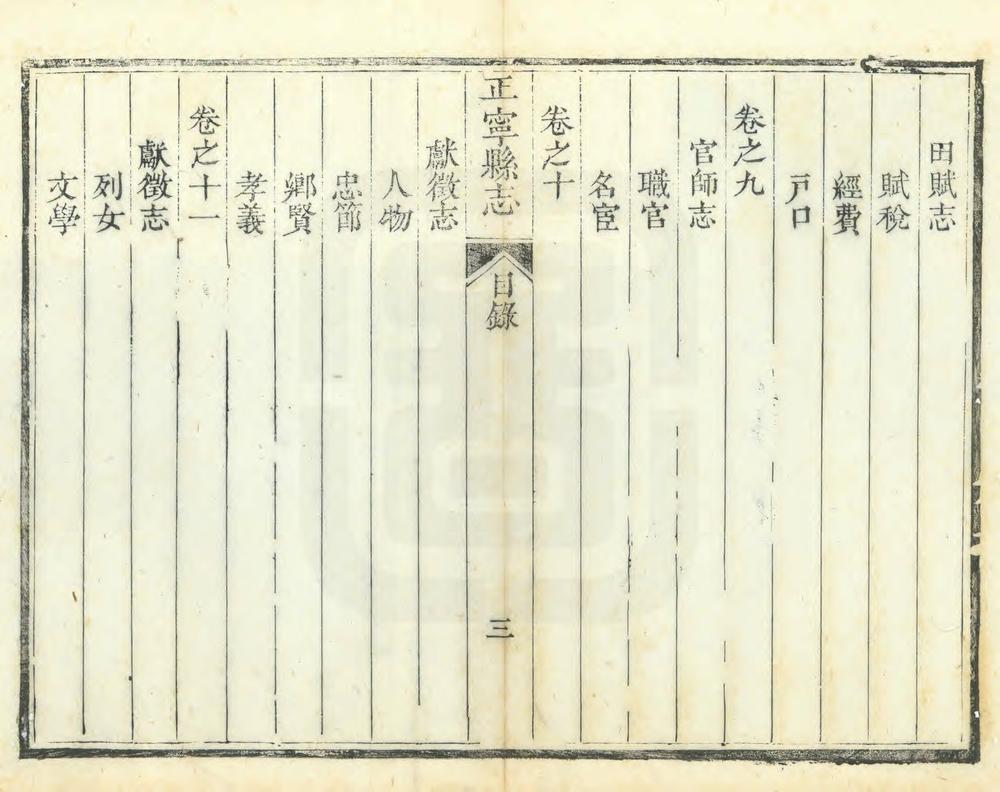 田賦志
賦稅
經費
戸口
卷之九
官師志
職官
名宦
卷之十
正寧縣志
目錄
三
獻徵志
人物
忠節
鄉賢
孝義
卷之十一
獻徵志
列女
文學